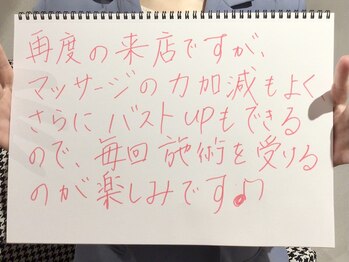 再度の来店ですが、
マッサージの力加減もよく
さらに バストUPもできる
ので、毎回 施術を受ける
のが楽しみです♪